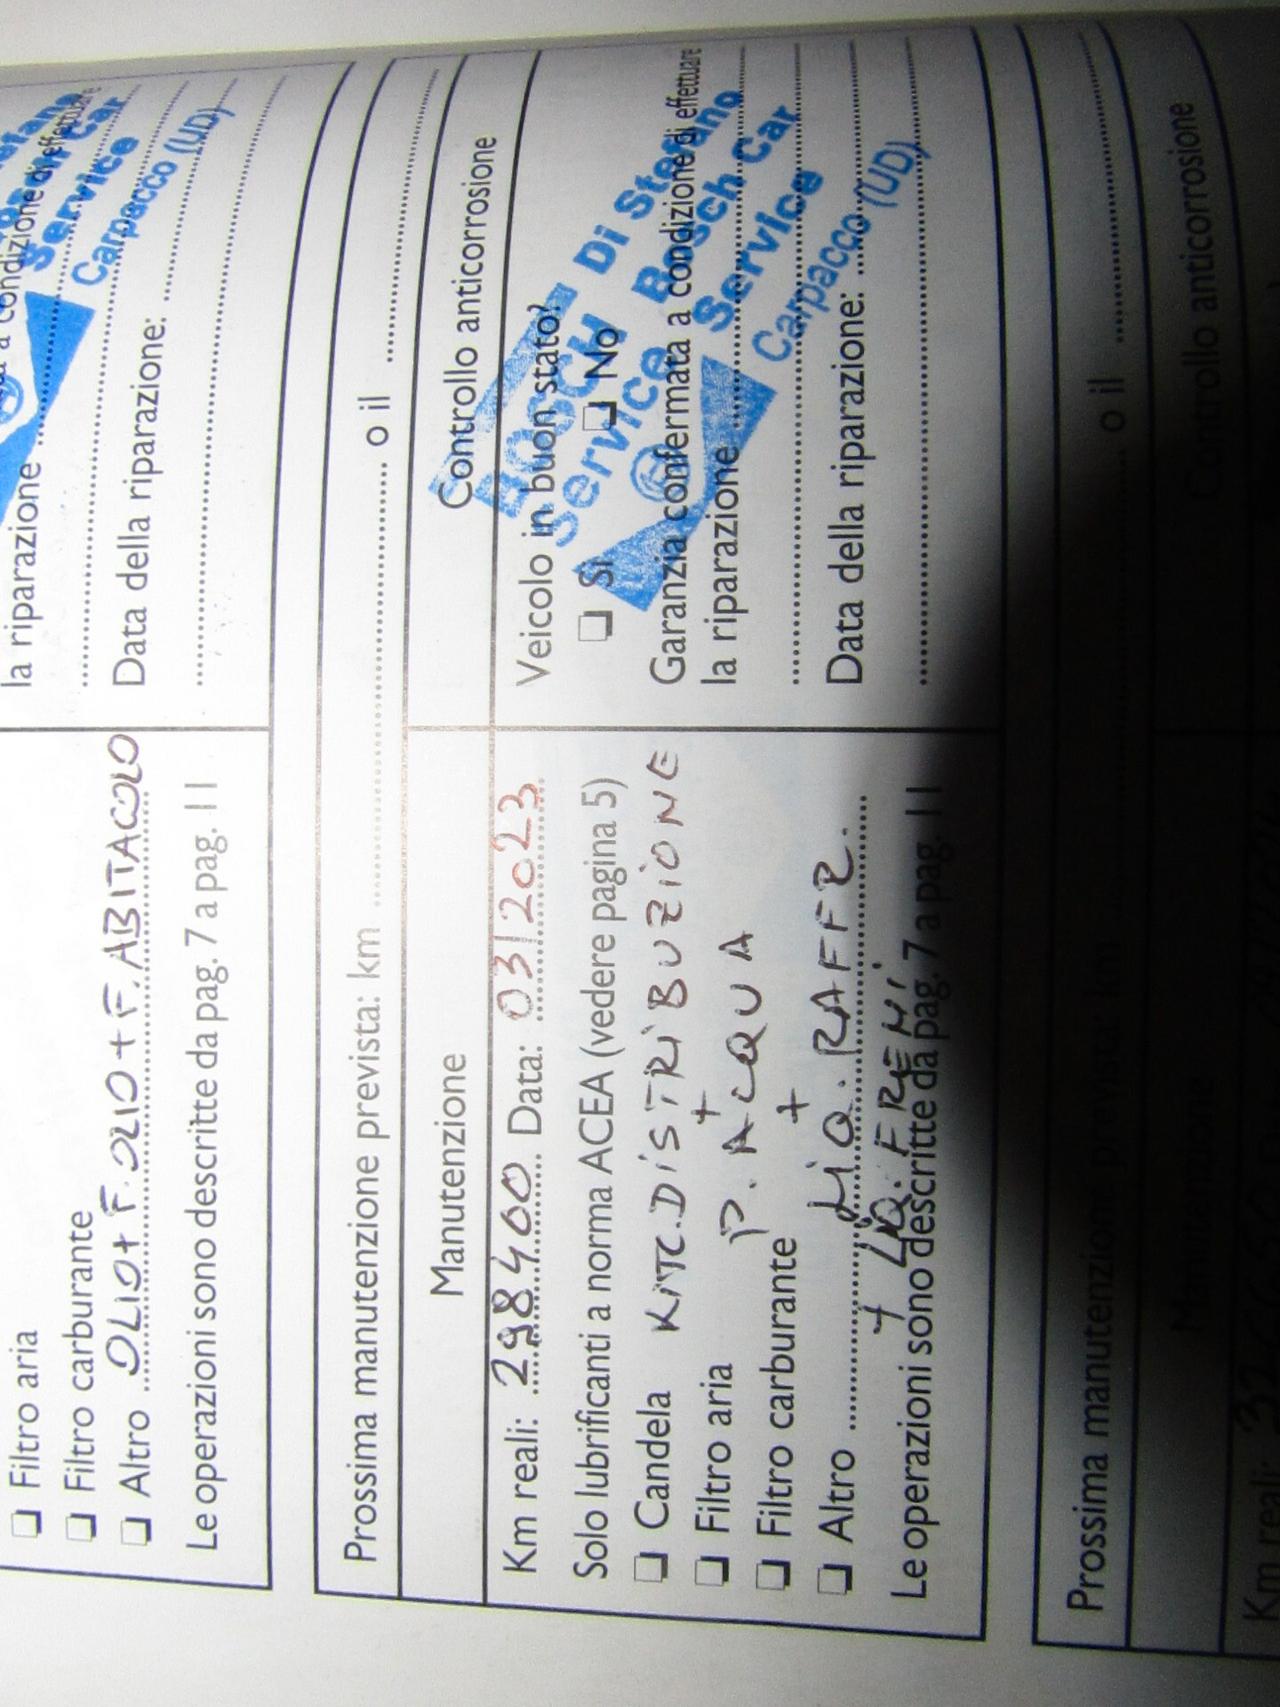 la riparazione
Data della riparazione:
Service
Carpacco (UD)
❑ Filtro aria
❑ Filtro carburante
❑ Altro OLIO + F. OLIO + F. ABITACOLO
Le operazioni sono descritte da pag. 7 a pag. 11
Prossima manutenzione prevista: km o il
Manutenzione
Controllo anticorrosione
Km reali: 298400 Data: 03/2023
Solo lubrificanti a norma ACEA (vedere pagina 5)
❑ Candela KIT C. DISTRIBUZIONE
+
❑ Filtro aria P. ACQUA
❑ Filtro carburante +
❑ Altro LIQ. RAFFR.
+ LIQ. FRENI
Le operazioni sono descritte da pag. 7 a pag. 11
Veicolo in buon stato?
❑ Sì ❑ No
Garanzia confermata a condizione di effettuare
la riparazione
Data della riparazione:
BOSCH Di Stefano
Service Bosch Car
Service
Carpacco (UD)
Prossima manutenzione prevista: km o il
Manutenzione
Controllo anticorrosione
Km reali: